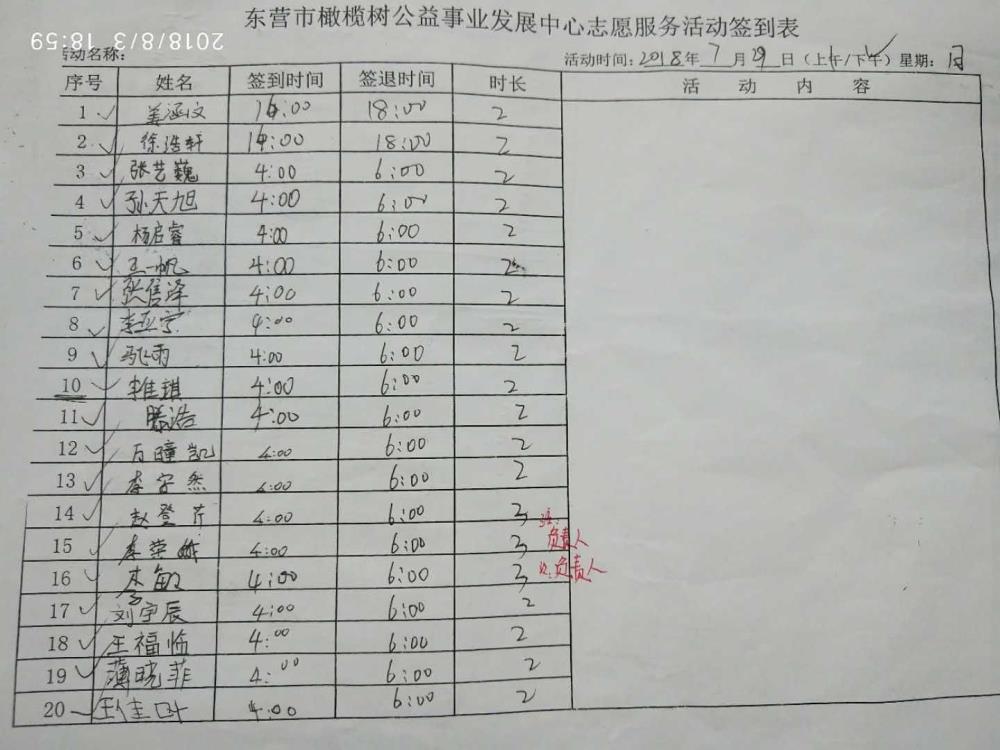 东营市橄榄树公益事业发展中心志愿服务活动签到表
2018/8/3 18:59
活动名称：
活动时间：2018年 7 月 29 日（上午/下午）星期：日
序号 姓名 签到时间 签退时间 时长 活动内容
1 姜涵文 16:00 18:00 2
2 徐浩轩 16:00 18:00 2
3 张艺巍 4:00 6:00 2
4 孙天旭 4:00 6:00 2
5 杨启睿 4:00 6:00 2
6 王一帆 4:00 6:00 2
7 张信泽 4:00 6:00 2
8 李亚宁 4:00 6:00 2
9 4:00 6:00 2
10 李佳琪 4:00 6:00 2
11 滕浩 4:00 6:00 2
12 万瞳凯 4:00 6:00 2
13 李宇然 4:00 6:00 2
14 赵登芹 4:00 6:00 3
15 李荣 4:00 6:00 3 负责人
16 李敏 4:00 6:00 3 负责人
17 刘宇辰 4:00 6:00 2
18 王福临 4:00 6:00 2
19 薄晓菲 4:00 6:00 2
20 王佳 4:00 6:00 2